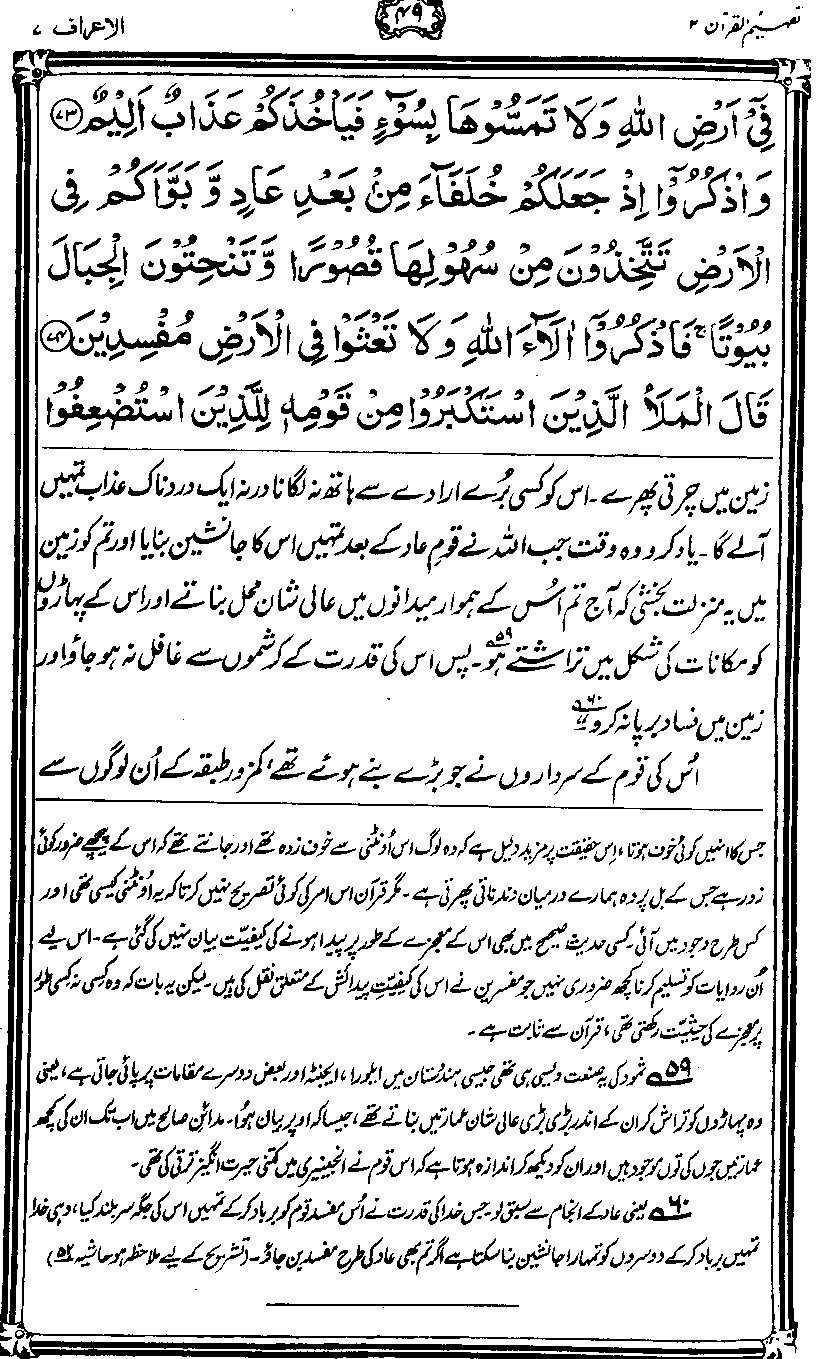 تفہیم القرآن ۲
۴۹
الاعراف ۷
فِیْۤ اَرْضِ اللّٰهِ وَلَا تَمَسُّوْهَا بِسُوْٓءٍ فَیَاْخُذَكُمْ عَذَابٌ اَلِیْمٌ ﴿۷۳﴾
وَاذْكُرُوْۤا اِذْ جَعَلَكُمْ خُلَفَآءَ مِنْۢ بَعْدِ عَادٍ وَّ بَوَّاَكُمْ فِی
الْاَرْضِ تَتَّخِذُوْنَ مِنْ سُهُوْلِهَا قُصُوْرًا وَّتَنْحِتُوْنَ الْجِبَالَ
بُیُوْتًا ۚ فَاذْكُرُوْۤا اٰلَآءَ اللّٰهِ وَلَا تَعْثَوْا فِی الْاَرْضِ مُفْسِدِیْنَ ﴿۷۴﴾
قَالَ الْمَلَاُ الَّذِیْنَ اسْتَكْبَرُوْا مِنْ قَوْمِهٖ لِلَّذِیْنَ اسْتُضْعِفُوْا
زمین میں چرتی پھرے۔ اس کو کسی بُرے ارادے سے ہاتھ نہ لگانا ورنہ ایک دردناک عذاب تمہیں
آلے گا۔ یاد کرو وہ وقت جب اللہ نے قومِ عاد کے بعد تمہیں اس کا جانشین بنایا اور تم کو زمین
میں یہ منزلت بخشی کہ آج تم اُس کے ہموار میدانوں میں عالی شان محل بناتے اور اس کے پہاڑوں
کو مکانات کی شکل میں تراشتے ہو۵۹۔ پس اس کی قدرت کے کرشموں سے غافل نہ ہو جاؤ اور
زمین میں فساد برپا نہ کرو۶۰۔
اُس کی قوم کے سرداروں نے جو بڑے بنے ہوئے تھے، کمزور طبقہ کے اُن لوگوں سے
جس کا انہیں کوئی خوف ہوتا، اِس حقیقت پر مزید دلیل ہے کہ وہ لوگ اس اُونٹنی سے خوف زدہ تھے اور جانتے تھے کہ اس کے پیچھے ضرور کوئی
زور ہے جس کے بل پر وہ ہمارے درمیان دندناتی پھرتی ہے۔ مگر قرآن اس امر کی کوئی تصریح نہیں کرتا کہ یہ اُونٹنی کیسی تھی اور
کس طرح وجود میں آئی۔ کسی حدیث صحیح میں بھی اس کے معجزے کے طور پر پیدا ہونے کی کیفیت بیان نہیں کی گئی ہے۔ اس لیے
اُن روایات کو تسلیم کرنا کچھ ضروری نہیں جو مفسرین نے اس کی کیفیتِ پیدائش کے متعلق نقل کی ہیں۔ لیکن یہ بات کہ وہ کسی نہ کسی طور
پر معجزے کی حیثیت رکھتی تھی، قرآن سے ثابت ہے۔
۵۹ ثمود کی یہ صنعت ویسی ہی تھی جیسی ہندستان میں ایلورا، ایجنٹہ اور بعض دوسرے مقامات پر پائی جاتی ہے، یعنی
وہ پہاڑوں کو تراش کر ان کے اندر بڑی بڑی عالی شان عمارتیں بناتے تھے، جیسا کہ اوپر بیان ہُوا۔ مدائنِ صالح میں اب تک ان کی کچھ
عمارتیں جوں کی توں موجود ہیں اور ان کو دیکھ کر اندازہ ہوتا ہے کہ اس قوم نے انجینیری میں کتنی حیرت انگیز ترقی کی تھی۔
۶۰ یعنی عاد کے انجام سے سبق لو۔ جس خدا کی قدرت نے اُس مفسد قوم کو برباد کر کے تمہیں اس کی جگہ سربلند کیا، وہی خدا
تمہیں برباد کر کے دوسروں کو تمہارا جانشین بنا سکتا ہے اگر تم بھی عاد کی طرح مفسد بن جاؤ۔ (تشریح کے لیے ملاحظہ ہو حاشیہ ۵۲)